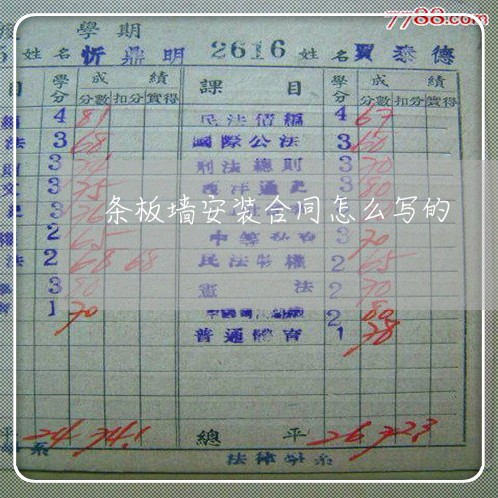 7788.com
學期
姓名 忻鼎明 2616 姓名 賈泰德
目 學分 成績 課目 學分 成績
分數 扣分 實得 分數 扣分 實得
4 81 民法債編 4 67
法 3 68 國際公法 3 60
3 刑法總則 3 70
3 75 西洋通史 3 80
条板墙安装合同怎么写的
2 65 3 70
法 2 68 68 民法物權 2 65
3 80 憲法 2 70
1 70 2 80
普通體育 1 78
平 24 74.1 總平 26 72.3
系 法律學系